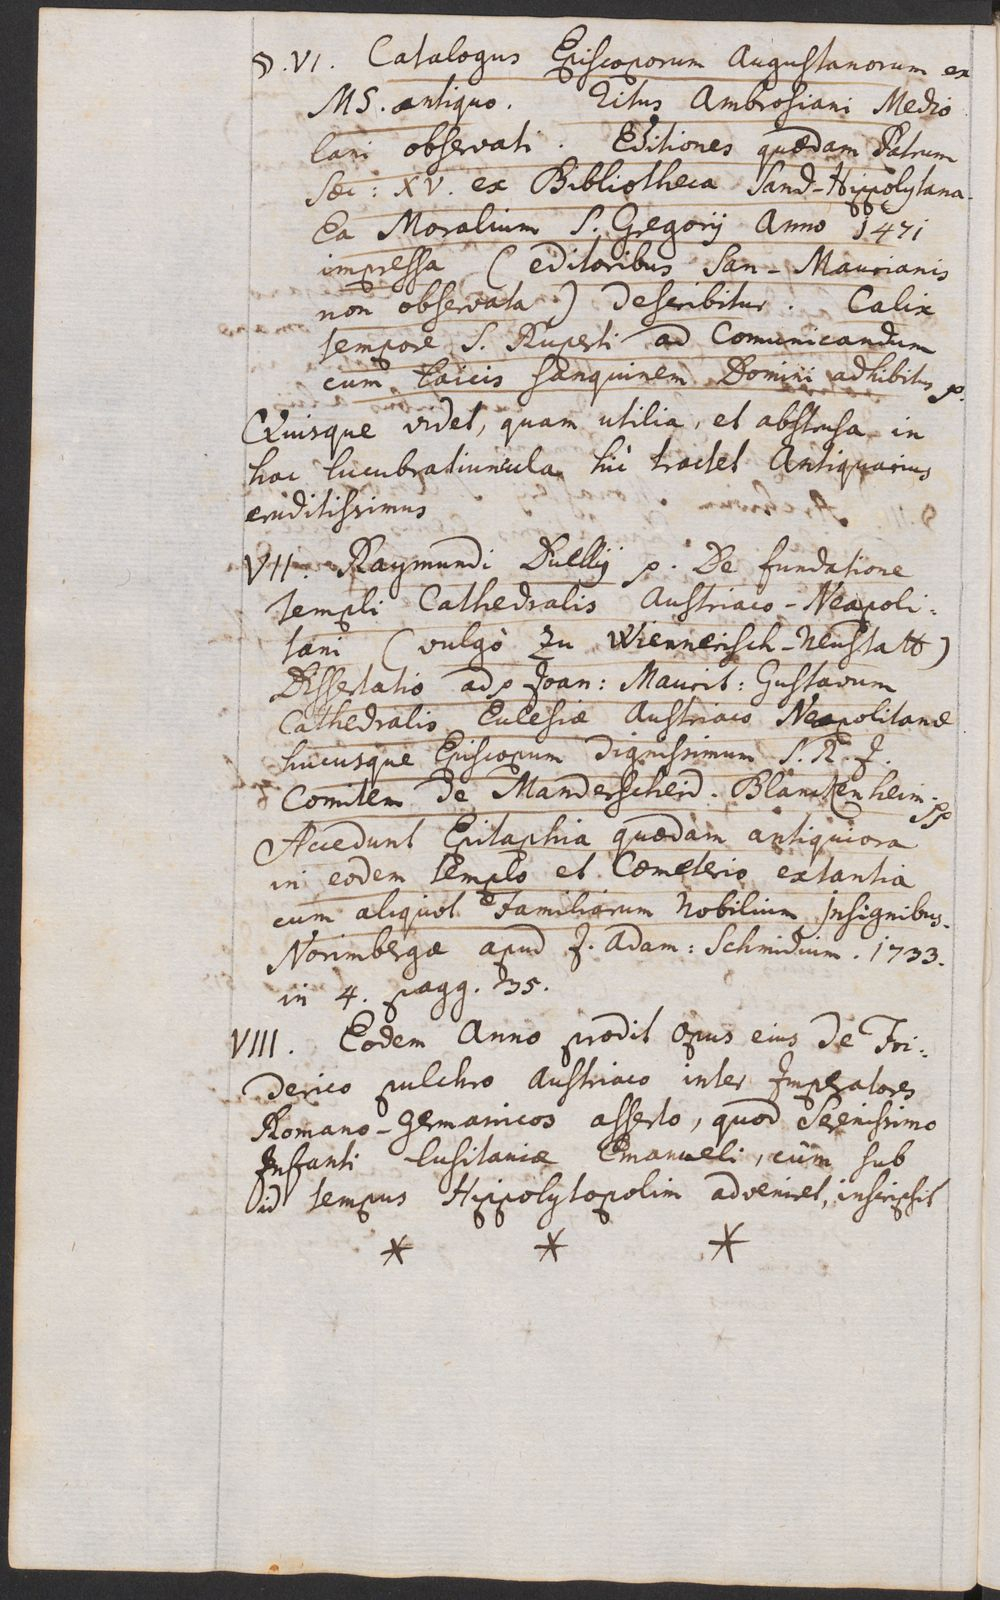 §.VI. Catalogus Episcoporum Augustanorum ex
MS. antiquo. Ritus Ambrosiani Medio
lani observati. Editiones quædam Patrum
Sæc: XV. ex Bibliotheca Sand-Hippolytana.
Ea Moralium S. Gregorij Anno 1471
impressa (editoribus San-Maurianis
non observata) describitur. Calix
tempore S. Ruperti ad Comunicandum
cum Laicis sanquinem Domini adhibitus p.
Quisque videt, quam utilia, et abstrusa in
hac lucubratiuncula hic tractet Antiquarius
eruditissimus
VII. Raymundi Duellij p. De fundatione
templi Cathedralis Austriaco-Neapoli-
tani (vulgò zu Wiennerisch-Neustatt)
Dissertatio ad p Joan: Maurit: Gustavum
Cathedralis Eclesiæ Austriaco Neapolitanæ
hucusque Episcopum dignissimum S. R. J.
Comitem de Manderscheid-Blanckenheim. pp
Accedunt Epitaphia quædam antiquiora
in eodem templo et Cæmeterio extantia
cum aliquot Familiarum Nobilium Jnsignibus.
Norimbergæ apud J. Adam: Schmidium. 1733.
in 4. pagg. 35.
VIII. Eodem Anno prodit Opus eius de Fri-
derico pulchro Austriaco inter Jmperatores
Romano-Germanicos asserto, quod Serenissimo
Jnfanti Lusitaniæ Emanueli, cùm sub
id tempus Hippolytopolim adveniret, inscripsit
* * *